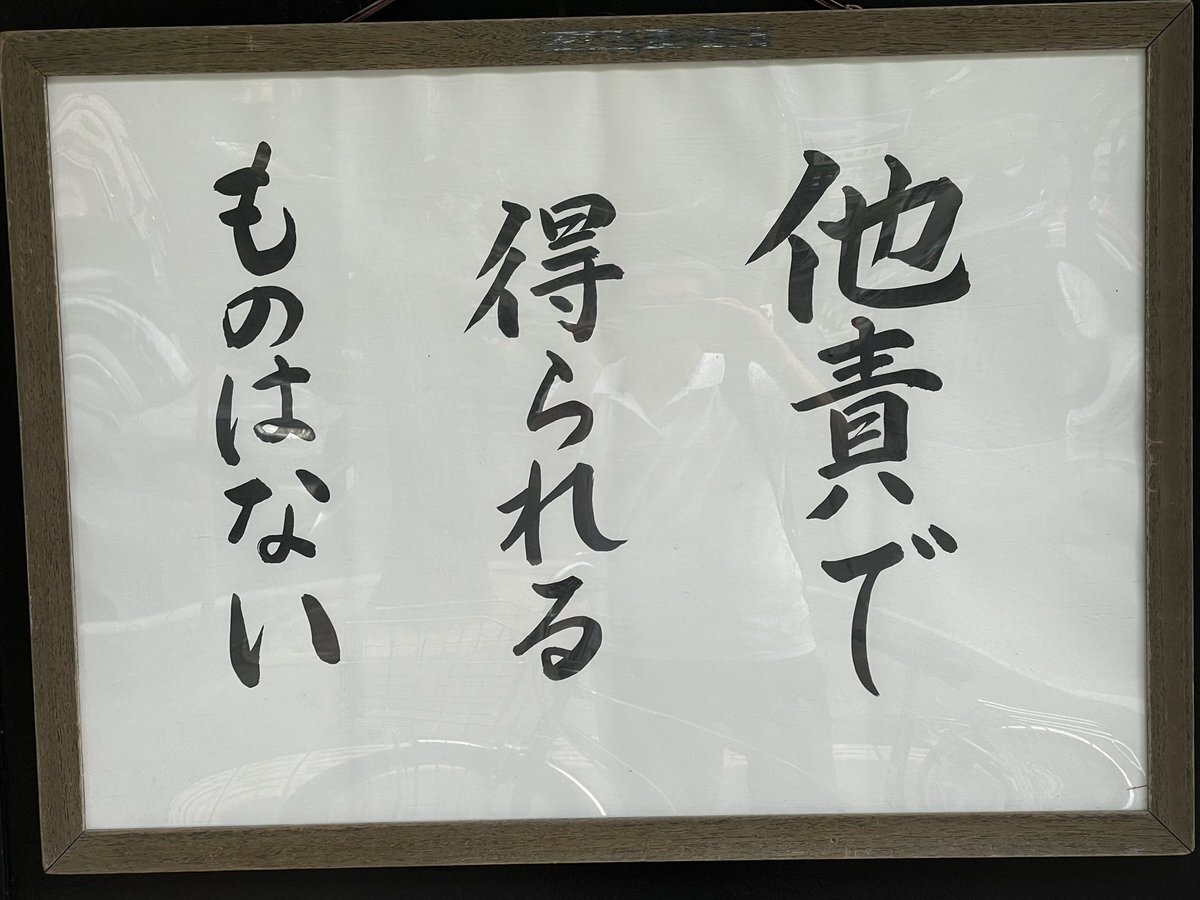 他責で
得られる
ものはない